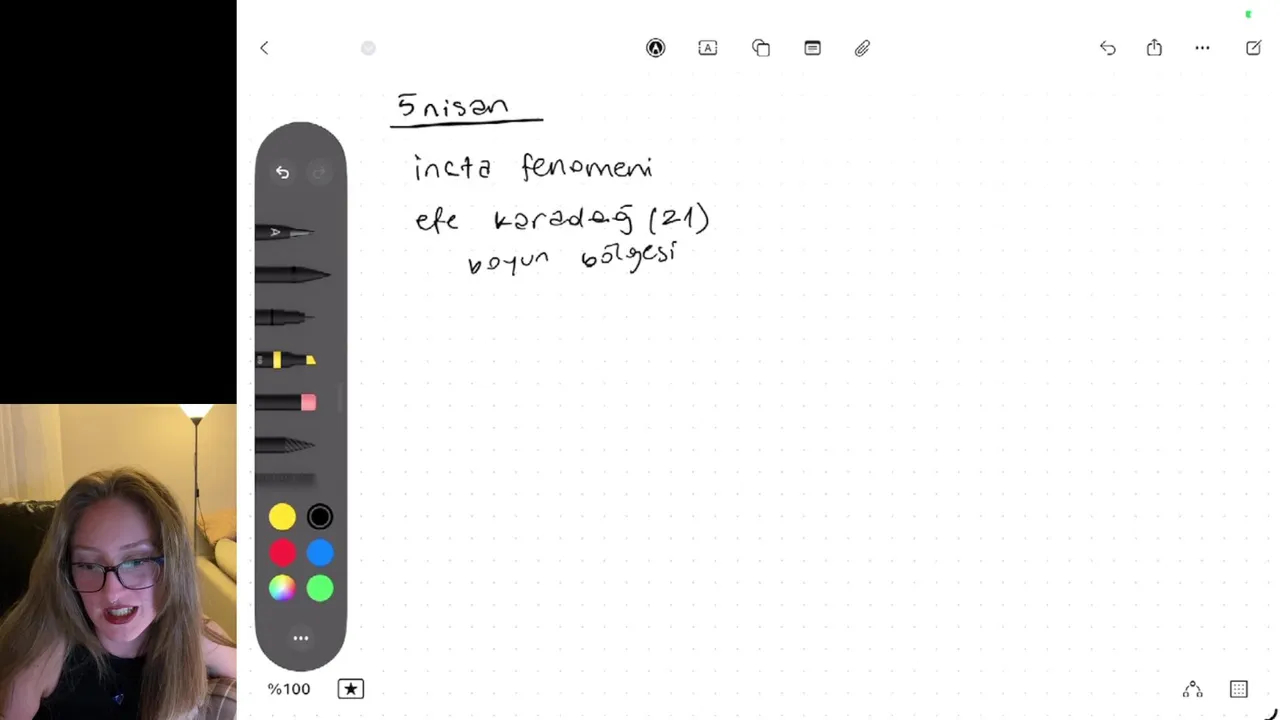 5 nisan
incta fenomeni
efe karadağ (21)
boyun bölgesi
%100